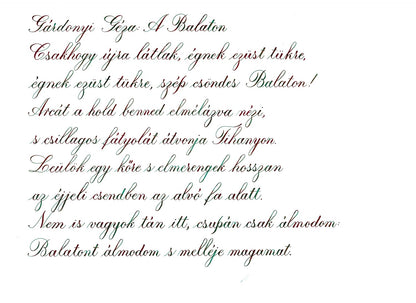 Gárdonyi Géza: A Balaton
Csakhogy újra látlak, égnek ezüst tükre,
égnek ezüst tükre, szép csöndes Balaton!
Arcát a hold benned elmélázva nézi,
s csillagos fátyolát átvonja Tihanyon.
Leülök egy kőre s elmerengek hosszan
az éjjeli csendben az alvó fa alatt.
Nem is vagyok tán itt, csupán csak álmodom:
Balatont álmodom s melléje magamat.